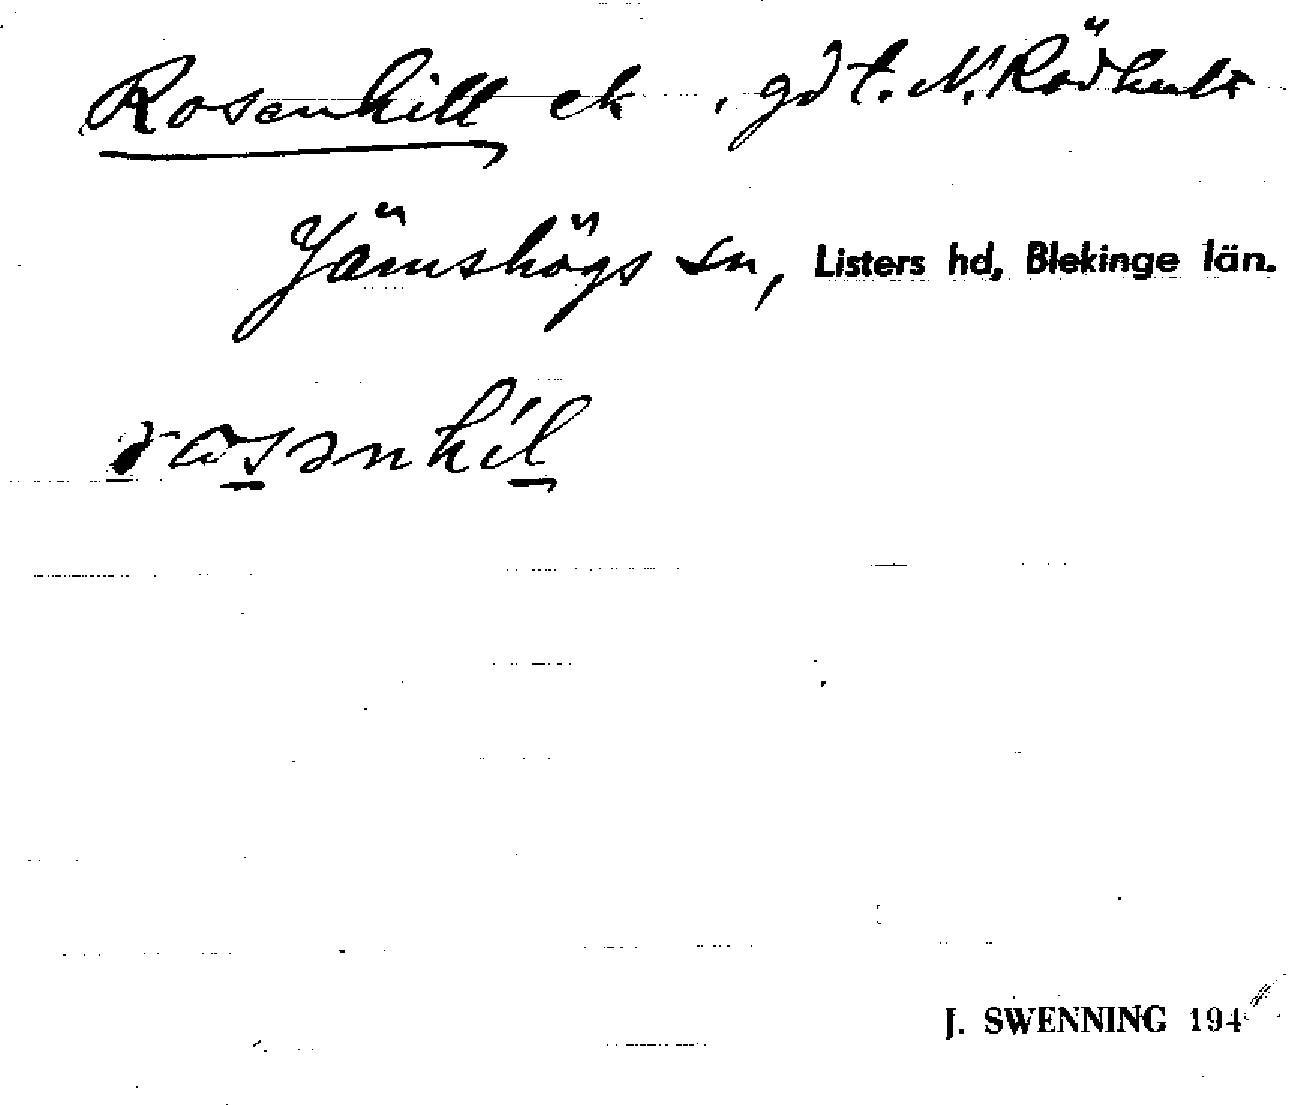 Rosenhill ek , gd t. N. Rödhult
Jämshögs sn, Listers hd, Blekinge län.
rosənhil
J. SWENNING 194